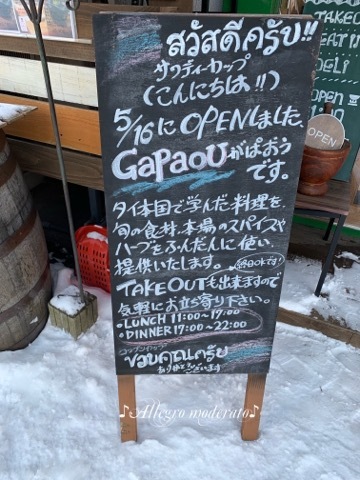 สวัสดีครับ!!
サワディーカップ
(こんにちは!!)
5/16にOPENしました、
GaPaoUがぱおう
です。
タイ本国で学んだ料理を、
旬の食材、本場のスパイスや
ハーブをふんだんに使い、
提供いたします。
TAKEOUTも出来ますので
気軽にお立ち寄り下さい。
・LUNCH 11:00~17:00
・DINNER 17:00~22:00
コップンカップ
ขอบคุณครับ
ありがとうございます
♪Allegro moderato♪
OPEN
TAKEOUT
EAT
DELI